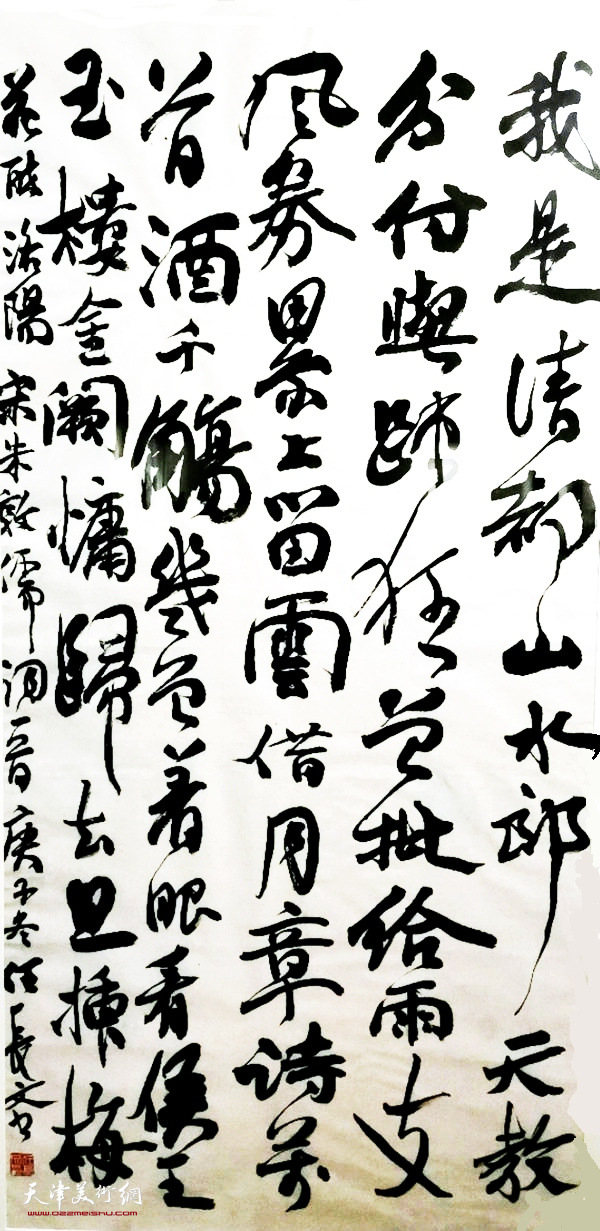 我是清都山水郎天教
分付與踈狂曾批給雨支
風券累上留雲借月章詩萬
首酒千觴幾曾着眼看侯王
玉樓金闕慵歸去且插梅
花醉洛陽 宋朱敦儒詞一首 庚子冬任長文書
天津美術網
www.022meishu.com